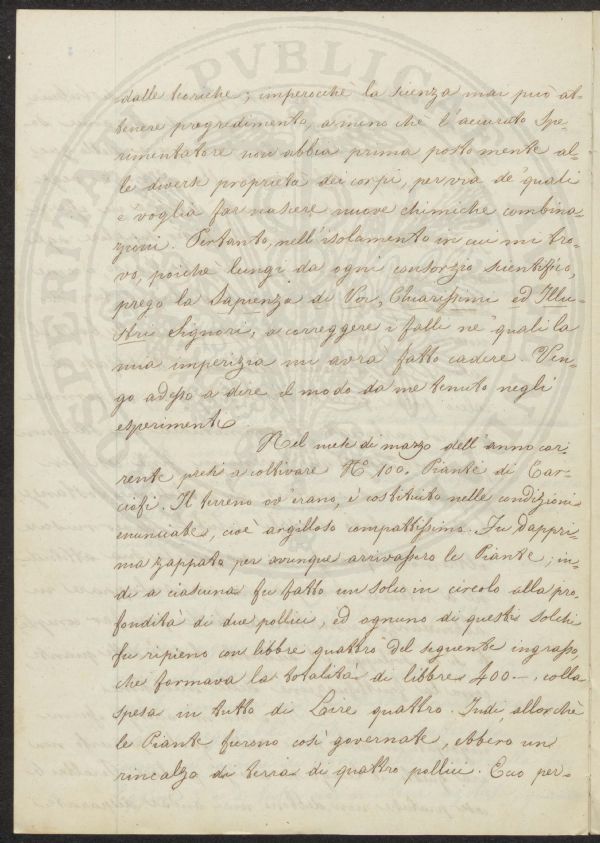 dalle teoriche; imperocchè la scienza mai può ot-
tenere progredimento, a meno che l'accurato Spe-
rimentatore non abbia prima posto mente al-
le diverse proprietà dei corpi, per via de' quali
e' voglia far nascere nuove chimiche combina-
zioni. Pertanto, nell'isolamento in cui mi tro-
vo, poichè lungi da ogni consorzio scientifico,
prego la Sapienza di Voi, Chiarissimi ed Illu-
stri Signori, a correggere i falli ne' quali la
mia imperizia mi avrà fatto cadere. Ven-
go adesso a dire il modo da me tenuto negli
esperimenti.
Nel mese di marzo dell'anno cor-
rente presi a coltivare N.° 100. Piante di Car-
ciofi. Il terreno ov'erano, è costituito nelle condizioni
enunciate, cioè argilloso compattissimo. Fu dappri-
ma zappato per ovunque arrivassero le Piante; in-
di a ciascuna fu fatto un solco in circolo alla pro-
fondità di due pollici, ed ognuno di questi solchi
fu ripieno con libbre quattro del seguente ingrasso,
che formava la totalità di libbre 400.-, colla
spesa in tutto di Lire quattro. Indi, allorchè
le Piante furono così governate, ebbero un
rincalzo di terra di quattro pollici. Ecco per-
PVBLICA